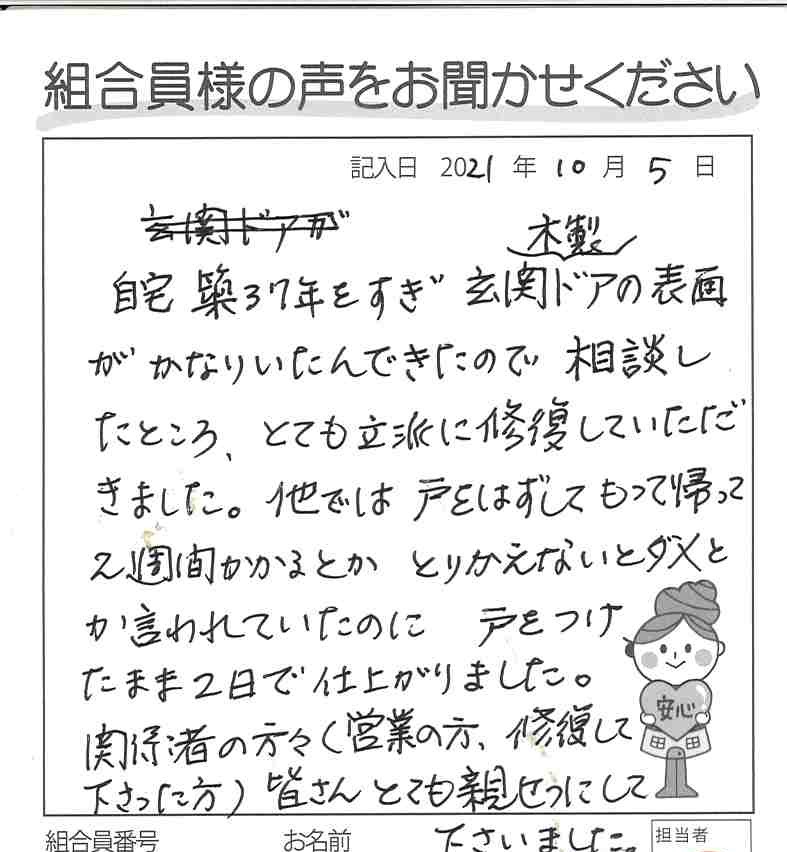 組合員様の声をお聞かせください
記入日 2021 年 10 月 5 日
玄関ドアが
木製
自宅 築37年をすぎ 玄関ドアの表面
が かなりいたんできたので 相談し
たところ、とても立派に修復していただ
きました。他では 戸をはずして もって帰って
2週間かかるとか とりかえないとダメと
か言われていたのに 戸をつけ
たまま2日で仕上がりました。
関係者の方々(営業の方、修復して
下さった方)皆さん とても親せつにして
下さいました。
安心
組合員番号 お名前 担当者